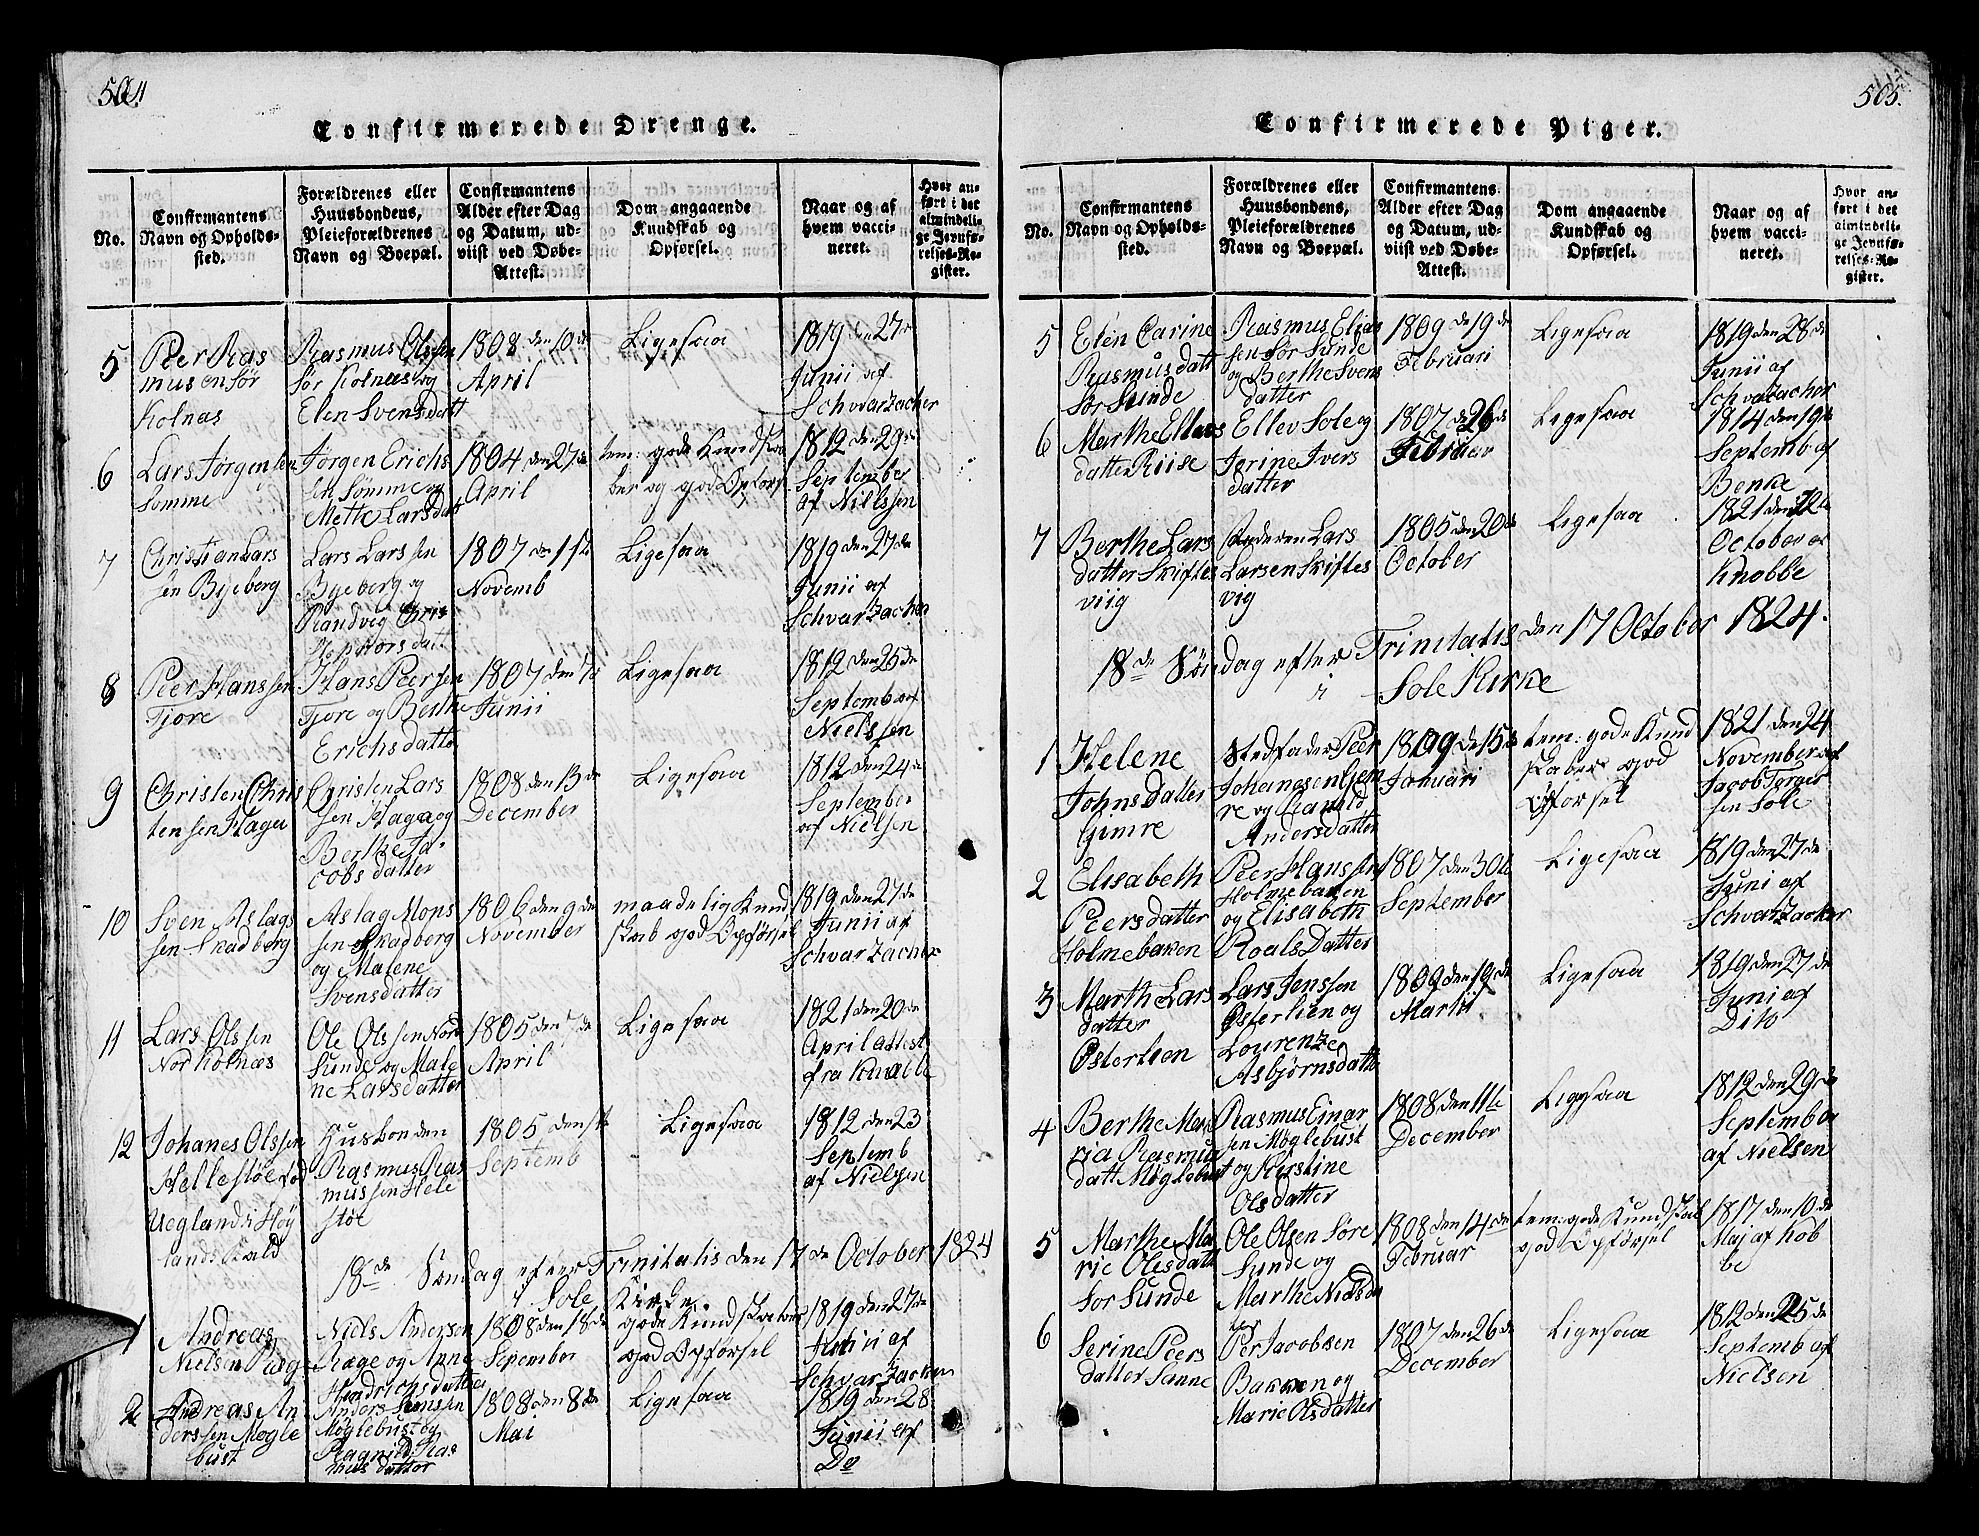 504
Confirmerede Drenge.
No.
Confirmantens
Navn og Opholds-
sted.
Forældrenes eller
Huusbondens,
Pleieforældrenes
Navn og Boepæl.
Confirmantens
Alder efter Dag
og Datum, ud-
viist ved Døbe-
Attest.
Dom angaaende
Kundskab og
Opførsel.
Naar og af
hvem vacci-
neret.
Hvor an-
ført i det
almindeli-
ge Jevnfø-
relses-Re-
gister.
5
Peer Ras
musen Sør
Kolnæs
Rasmus Olssen
Sør Kolnæs og
Elen Svensdatt
1808 den 10de
April
Ligesaa
1819 den 27de
Junii af
Schvarzacher
6
Lars Jørgensen
Sømme
Jørgen Erichs
sen Sømme og
Mette Larsdat
1804 den 27de
April
tem: gode Kundska
ber og god Opførs
1812 den 29de
September
af Nielssen
7
Christian Lars
sen Byeberg
Lars Larssen
Byeberg og
Randveg Chris
stophorsdatt
1807 den 1ste
Novemb
Ligesaa
1819 den 27de
Junii af
Schvarzacher
8
Peer Hanssen
Tjore
Hans Peersen
Tjore og Berthe
Erichsdatter
1807 den 7de
Junii
Ligesaa
1812 den 25de
Septemb af
Nielssen
9
Christen Chris
tensen Haga
Christen Lars
sen Haga og
Berthe Ja-
cobsdatter
1808 den 13de
December
Ligesaa
1812 den 24de
September
af Nielsen
10
Sven Aslags
sen Skadberg
Aslag Mons
sen Skadberg
og Malene
Svensdatter
1806 den 9de
November
maadelig Kund
skab god Opførsel
1819 den 27de
Junii af
Schvarzacher
11
Lars Olssen
Nor Kolnæs
Ole Olssen Nord
Sunde og Male
ne Larsdatter
1805 den 7de
April
Ligesaa
1821 den 20de
April attest
fra Knabbe
12
Johanes Olssen
Hellestøe fød
Ueglands i Høy
lands Kald
Husbonden
Rasmus Ras
mussen Hele
støe
1805 den 1ste
Septemb
Ligesaa
1812 den 23
Septemb
af Nielsen
18de Søndag efter Trinitatis den 17de October 1824
i Sole Kirke.
1
Andreas
Nielsen Ræge
Niels Andersen
Ræge og Anne
Hendrichsdatter
1808 den 18de
Sepember
gode Kundskaber
god Opførsel
1819 den 27de
Junii af
Schvarzacher
2
Andreas An
derssen Møgle
bust
Anders Simssen
Møglebust og
Ragnild Ras
mus datter
1808 den 8de
Mai
Ligesaa
1819 den 28
Junii af
Do
505.
Confirmerede Piger.
No.
Confirmantens
Navn og Opholds-
sted.
Forældrenes eller
Huusbondens,
Pleieforældrenes
Navn og Boepæl.
Confirmantens
Alder efter Dag
og Datum, ud-
viist ved Døbe-
Attest.
Dom angaaende
Kundskab og
Opførsel.
Naar og af
hvem vacci-
neret.
Hvor an-
ført i det
almindelig
ge Jevnfø-
relses-Re-
gister.
5
Elen Carine
Rasmusdatt
Sør Sunde
Rasmus Elias
sen Sør Sunde
og Berthe Svens
datter
1809 de 19de
Februari
Ligesaa
1819 den 28de
Junii af
Schvazacher
6
Marthe Ellevs
datter Riise
Ellev Sole og
Jorine Ivers
datter
1807 de 26de
Februar
Ligesaa
1814 den 19de
Septemb af
Benke
7
Berthe Lars
datter Skiftes
viig
Faderen Lars
Larsen Skiftes
vig
1805 den 20de
October
Ligesaa
1821 den 22de
October af
Knobbe
18de Søndag efter Trinitatis den 17 October 1824.
i Sole Kirke
1
Helene
Johnsdatter
Gimre
Stedfader Peer
Johanesen Gjem
re og Ranild
Andersdatter
1809 de 15de
Januari
tem: gode Kund
skaber god
Opførsel
1821 den 24
November af
Jacob Torger
sen Sole
2
Elisabeth
Peersdatter
Holmebaken
Peer Hanssen
Holmebaken
og Elisabeth
Roals Datter
1807 den 30te
September
Ligesaa
1819 den 27de
Juni af
Schvarzacker
3
Marth Lars
datter
Østerhen
Lars Jenssen
Østerhen og
Lourenze
Asbjørnsdatte
1809 de 19de
Martii
Ligesaa
1819 den 27de
Juni af
Dito
4
Berthe Ma
ria Rasmus
datt Møglebust
Rasmus Einar
sen Møglebust
og Kerstine
Olsdatter
1808 den 11te
December
Ligesaa
1812 den 29de
September
af Nielsen
5
Marthe Ma
rie Olesdatt
Sør Sunde
Ole Olsen Søre
Sunde og
Marthe Nielsda
tter
1808 den 14de
Februar
tem: gode Kundskab
god Opførsel
1817 den 10de
Maj af Kob
be
6
Serine Peers
datter Sanne
Per Jacobsen
Bakken og
Marie Olsdatter
1807 den 26de
December
Ligesaa
1812 den 25de
Septemb af
Nielsen